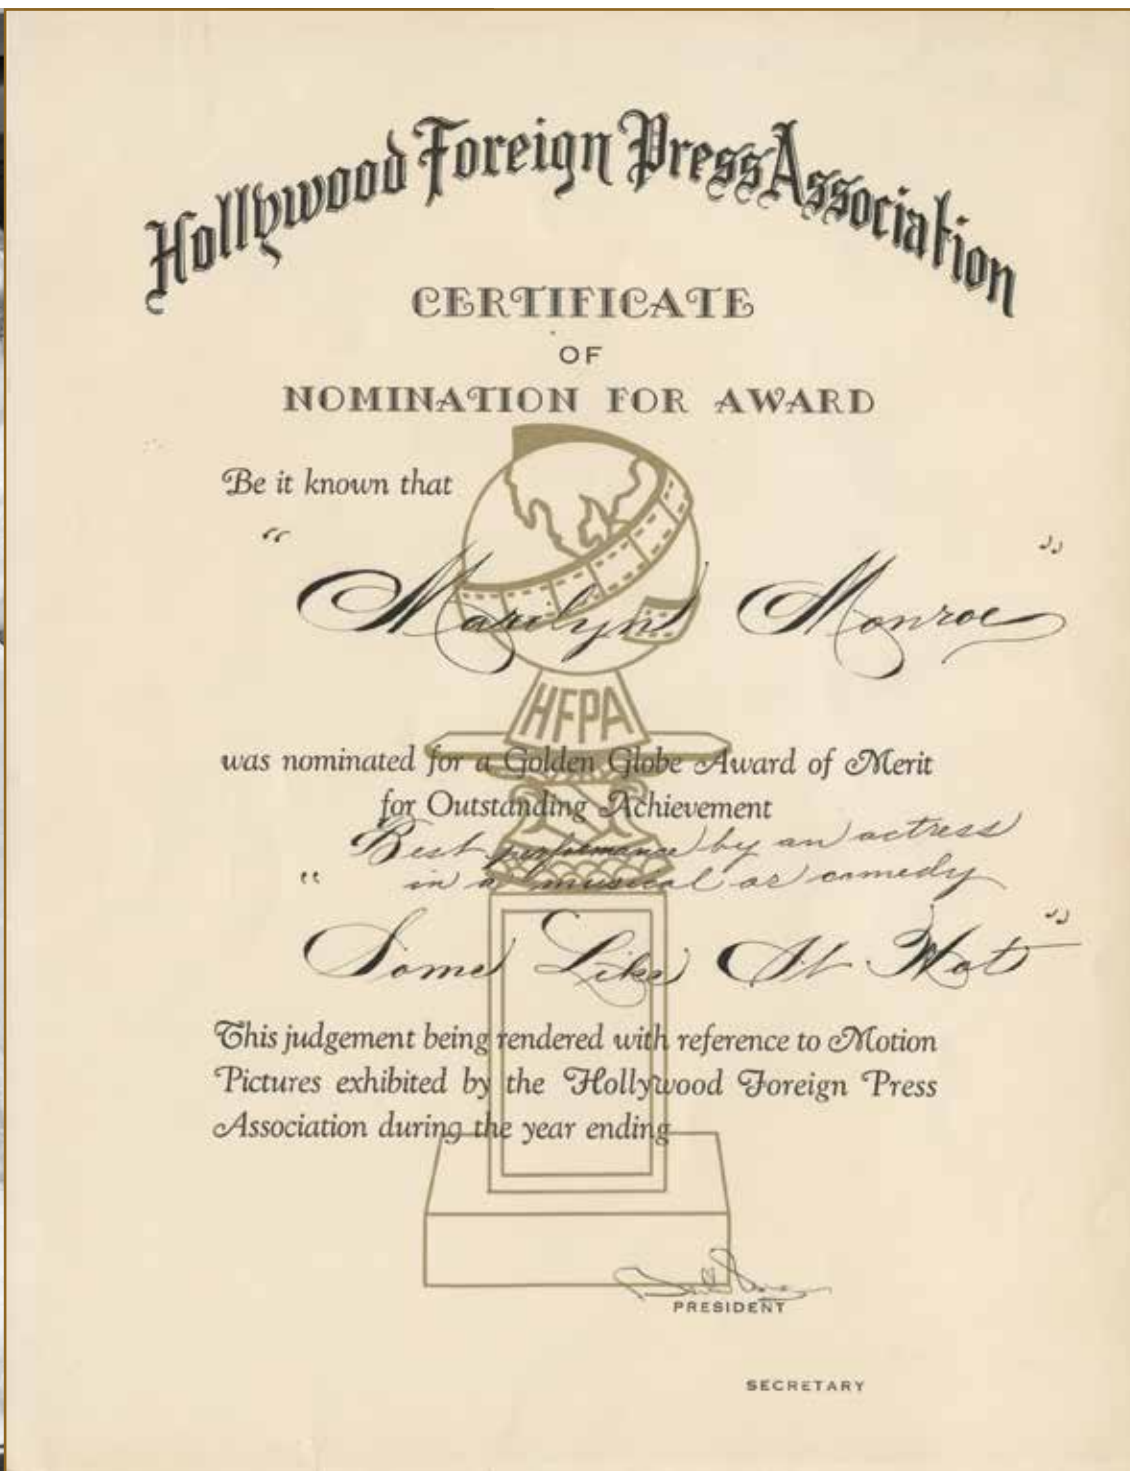 Hollywood Foreign Press Association
CERTIFICATE
OF
NOMINATION FOR AWARD
Be it known that
"Marilyn Monroe"
HFPA
was nominated for a Golden Globe Award of Merit
for Outstanding Achievement
Best performance by an actress
in a musical or comedy
"Some Like It Hot"
This judgement being rendered with reference to Motion
Pictures exhibited by the Hollywood Foreign Press
Association during the year ending
PRESIDENT
SECRETARY